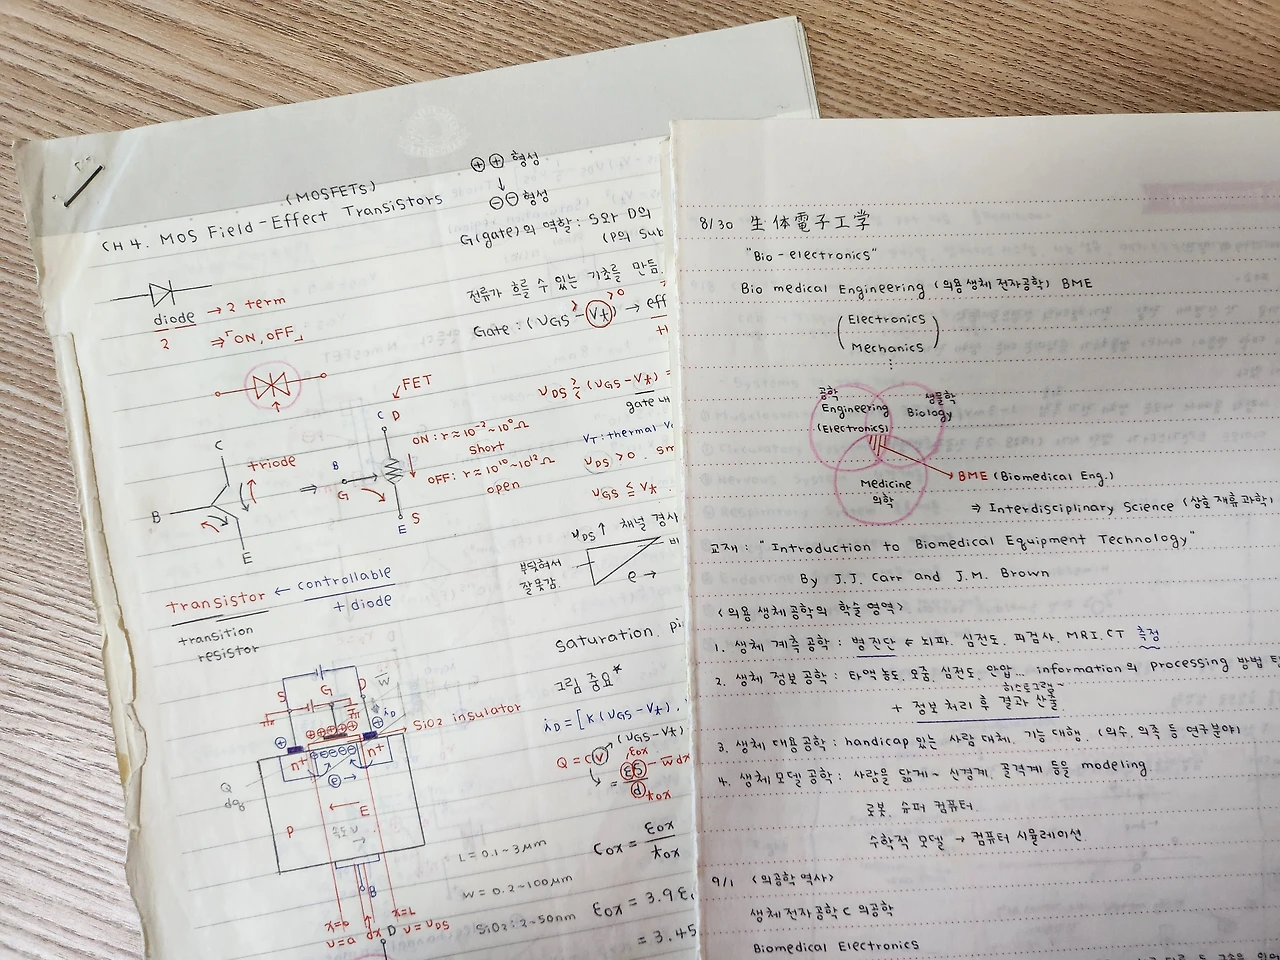 (MOSFETs)
CH 4. MOS Field-Effect Transistors
diode → 2 term
2 ⇒「ON, OFF」
FET
C D
C
triode
B
E
⇒
B
G
E S
ON : r ≈ 10⁻² ~ 10⁰ Ω
short
OFF : r ≈ 10¹⁰ ~ 10¹² Ω
open
transistor ← controllable
+ diode
transition
resistor
S G D
W
iD
SiO2 insulator
n+ n+
Q
dq
e →
E
P
속도 v
B
L = 0.1 ~ 3μm
W = 0.2 ~ 100μm
SiO2 : 2 ~ 50nm
x=0 dx x=L
D v = vDS
⊕⊕ 형성
↓
⊖⊖ 형성
G(gate)의 역할 : S와 D의
(P의 Sub
전류가 흐를 수 있는 기초를 만듦.
Gate : (vGS - Vt) > 0 → eff
vDS ≷ (vGS - Vt) =
gate 내
VT : thermal v
vDS > 0. sm
vGS ≦ Vt
vDS ↑ 채널 경사
부딪혀서
잘못감.
e →
saturation. pi
그림 중요*
iD = [K(vGS - Vt).
(vGS - Vt)
Q = CV
Cox = εox / tox
εox = 3.9 ε
= 3.45
8/30 生体電子工学
"Bio-electronics"
Bio medical Engineering (의용생체 전자공학) BME
(Electronics
Mechanics)
공학
Engineering
(Electronics)
생물학
Biology
Medicine
의학
BME (Biomedical Eng.)
⇒ Interdisciplinary Science (상호 재휴 과학)
교재 : "Introduction to Biomedical Equipment Technology"
By J.J. Carr and J.M. Brown
<의용 생체공학의 학술 영역>
1. 생체 계측 공학 : 병 진단 ← 뇌파. 심전도. 피검사. MRI. CT 측정
2. 생체 정보 공학 : 타액 농도. 오줌. 심전도. 안압... information의 processing 방법
히스토그램~
+ 정보 처리 후 결과 산출
3. 생체 대용 공학 : handicap 있는 사람 대체. 기능 대행. (의수. 의족 등 연구분야)
4. 생체 모델 공학 : 사람을 닮게~ 신경계. 골격계 등을 modeling
로봇. 슈퍼 컴퓨터.
수학적 모델 → 컴퓨터 시뮬레이션
9/1 <의공학 역사>
생체전자공학 C 의공학
Biomedical Electronics